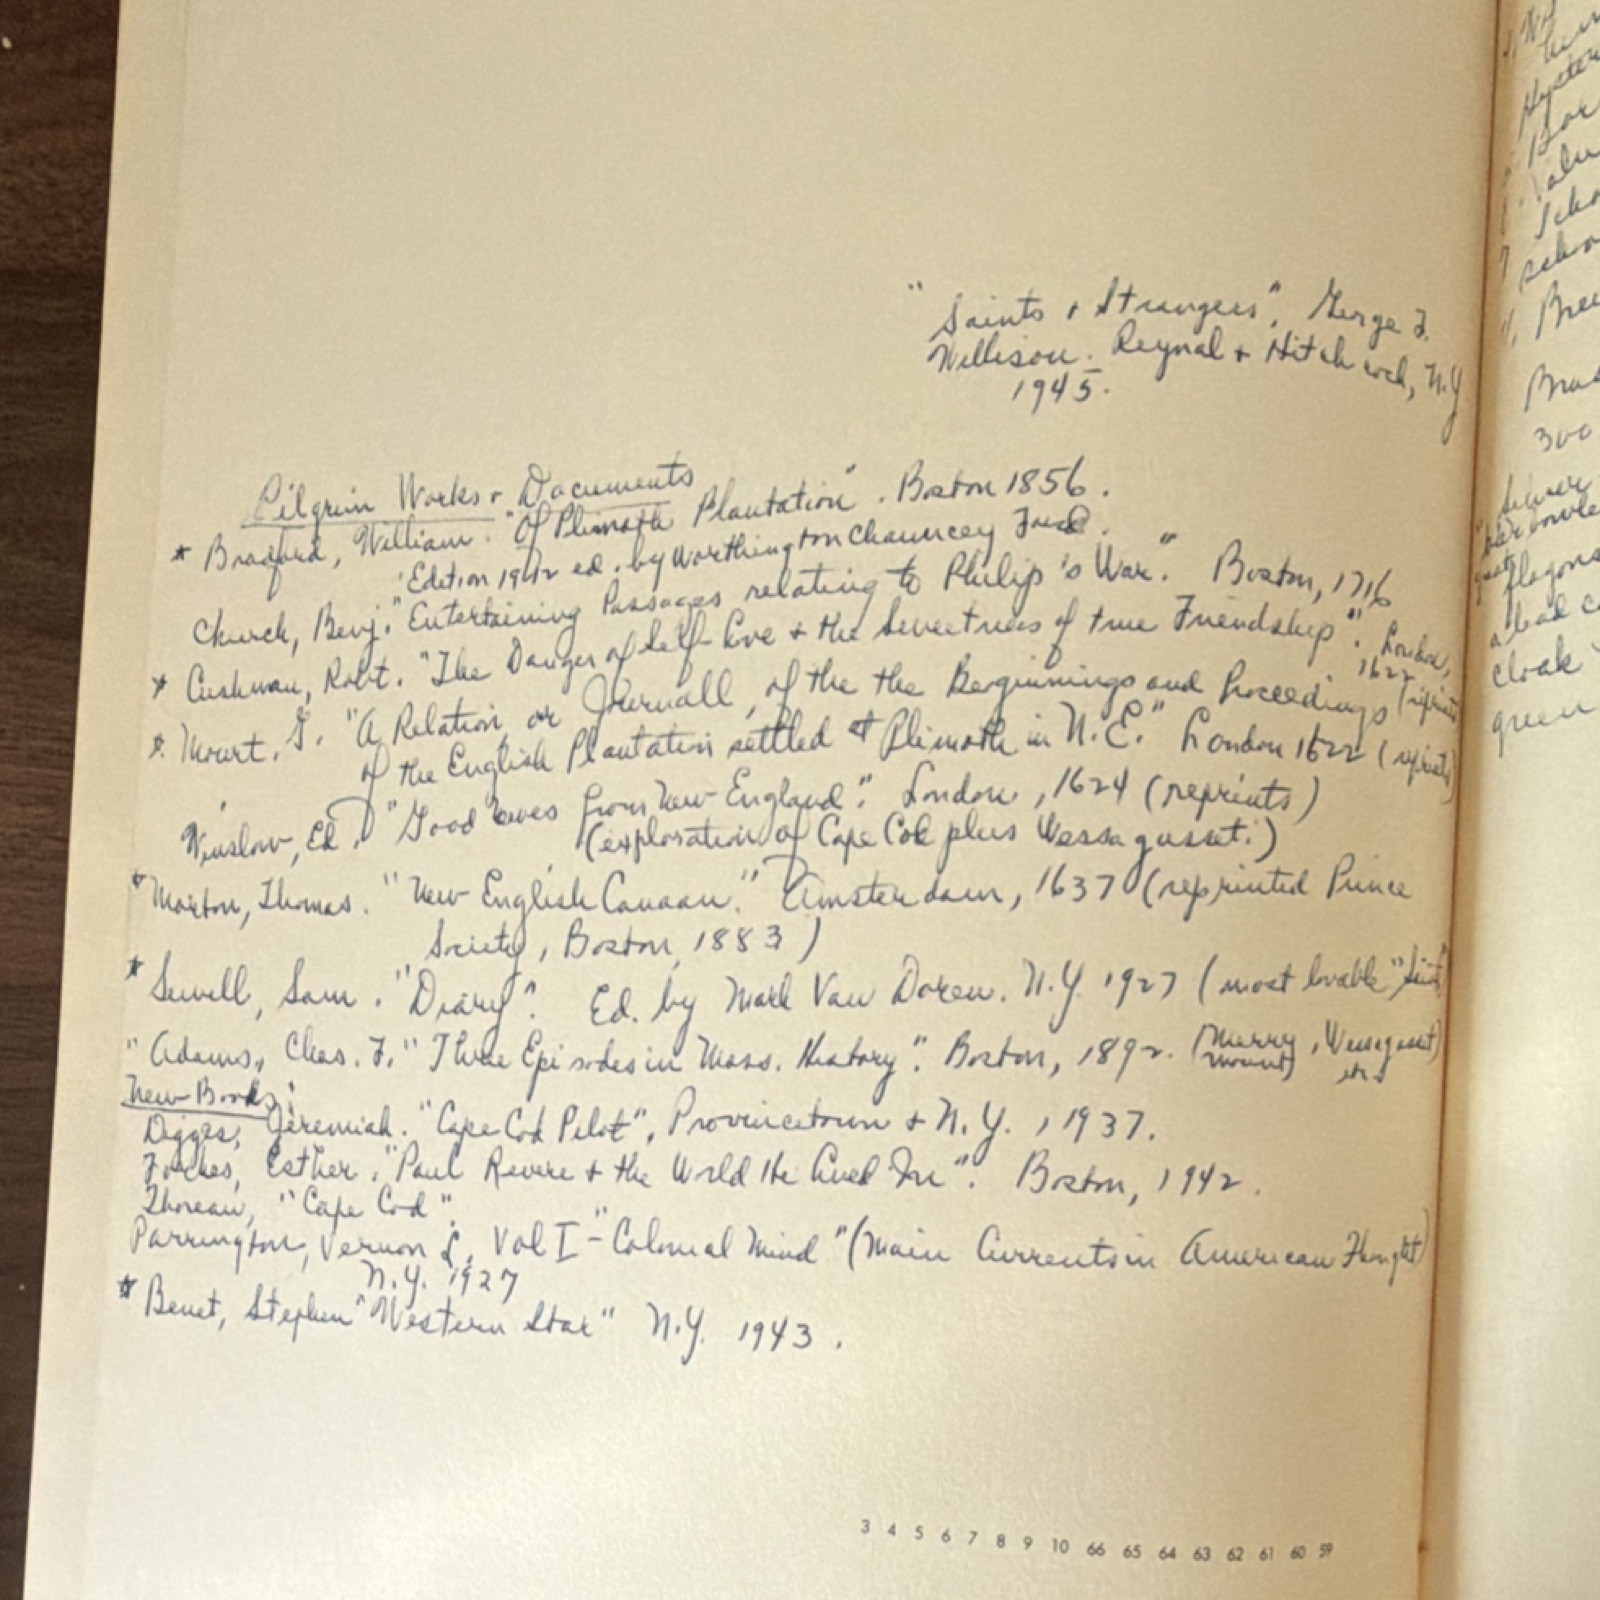 "Saints + Strangers", George F.
Willison. Reynal + Hitchcock, N.Y
1945.
Pilgrim Works + Documents
* Bradford, William. "Of Plimoth Plantation". Boston 1856.
Edition 1912 ed. by Worthington Chauncey Ford.
Church, Benj. "Entertaining Passages relating to Philip's War." Boston, 1716
* Cushman, Robt. "The Danger of Self-love + the Sweetness of true Friendship". London,
1622 (reprints
* Mourt, G. "A Relation, or Journall, of the the Beginnings and Proceedings
of the English Plantation settled at Plimoth in N.E." London 1622 (reprints)
Winslow, Ed. "Good News from New England". London, 1624 (reprints)
(exploration of Cape Cod plus Wessagusset.)
* Morton, Thomas. "New English Canaan." Amsterdam, 1637 (reprinted Prince
Society, Boston, 1883)
* Sewell, Sam. "Diary". Ed. by Mark Van Doren. N.Y. 1927 (most lovable "Saint"
" Adams, Chas. F. "Three Episodes in Mass. History". Boston, 1892. (Merry mount, Wessagusset) etc
New Books:
Digges, Jeremiah. "Cape Cod Pilot", Provincetown + N.Y., 1937.
Forbes, Esther. "Paul Revere + the World He Lived In". Boston, 1942.
Thoreau, "Cape Cod".
Parrington, Vernon L. Vol I - "Colonial Mind" (Main Currents in American Thought)
N.Y. 1927
* Benet, Stephen "Western Star" N.Y. 1943.
3 4 5 6 7 8 9 10 66 65 64 63 62 61 60 59
300
flagons
cloak
green